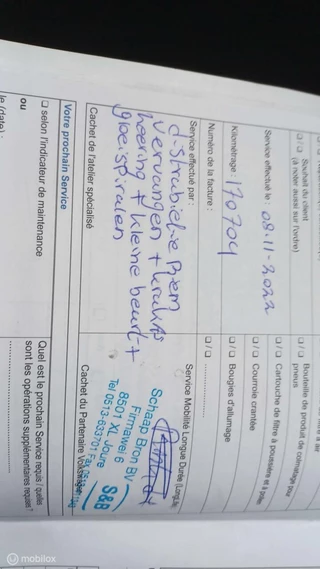 Souhait du client
(à noter aussi sur l'ordre)
Service effectué le : 08-11-2022
Kilométrage : 170704
Numéro de la facture :
Service effectué par :
distributie Riem
vervangen + koelvls
keering + kleine beurt +
gloeispiralen
Cachet de l'atelier spécialisé
Votre prochain Service
selon l'indicateur de maintenance
ou
le (date) :
Bouteille de produit de colmatage pour
pneus
Cartouche de filtre à poussière et à pollen
Courroie crantée
Bougies d'allumage
Service Mobilité Longue Durée
Schaap Bron BV
Firmawei 6
8501 XL Joure
Tel 0513-
S&B
Cachet du Partenaire Volkswagen
Quel est le prochain Service requis / quelles
sont les opérations supplémentaires requises ?
mobilox